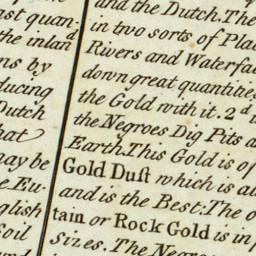 st quan-
the inland
ns by
ducing
Dutch
hat
may be
e Eu-
glish
Soil
and the Dutch. The
in two sorts of Pla
Rivers and Waterfa
down great quantitie
the Gold with it. 2d
the Negroes Dig Pits a
Earth. This Gold is of
Gold Dust which is al
and is the Best: The o
tain or Rock Gold is in p
Sizes. The Negro